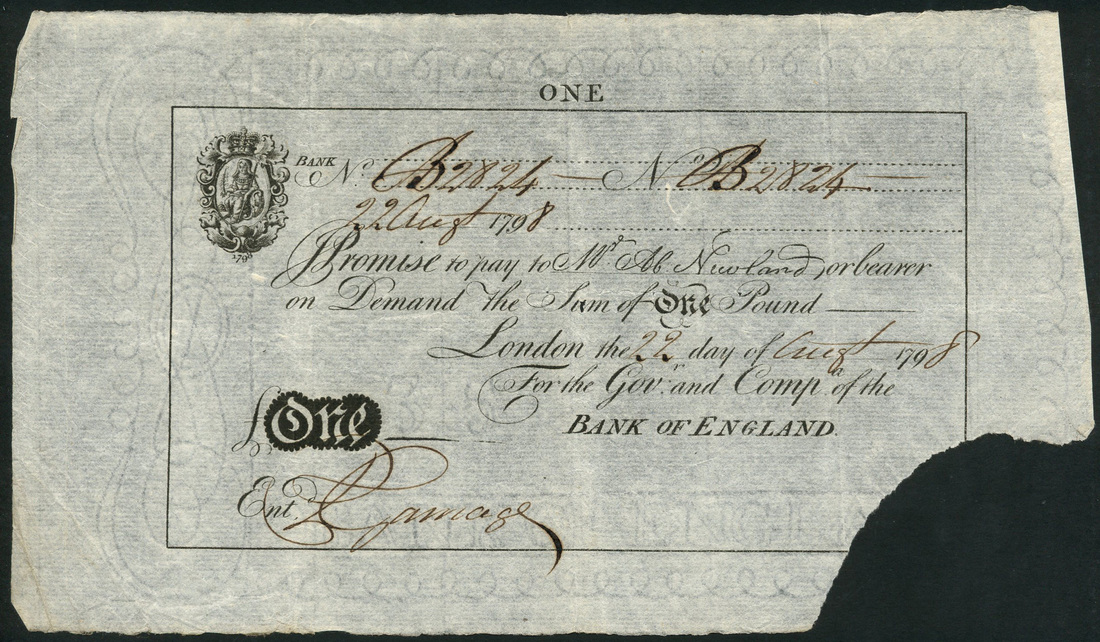 ONE
BANK No. B2824 — No B2824 —
22 Augt 1798
1798
I Promise to pay to Mr. Ab. Newland, or bearer
on Demand the Sum of One Pound
London the 22 day of Augt 1798
For the Govr. and Compa. of the
BANK OF ENGLAND.
£One
Entd. Ramage